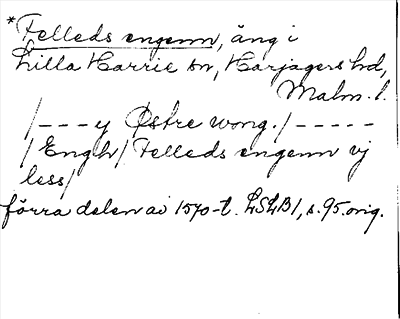 *Felleds engenn, äng i
Lilla Harrie sn, Harjagers hd,
Malm. l.
/---y Østre wong./-----
/Engh/ Felleds engenn vj
less/
förra delen av 1570-t. LSLB1, s. 95. orig.